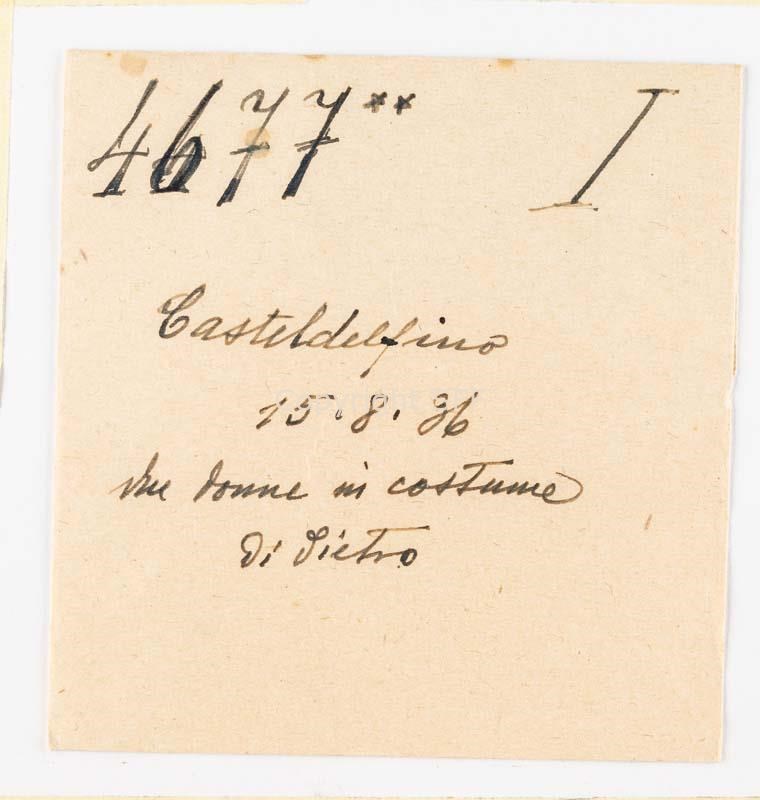 4677** I
Casteldelfino
15.8.36
due donne in costume
di dietro